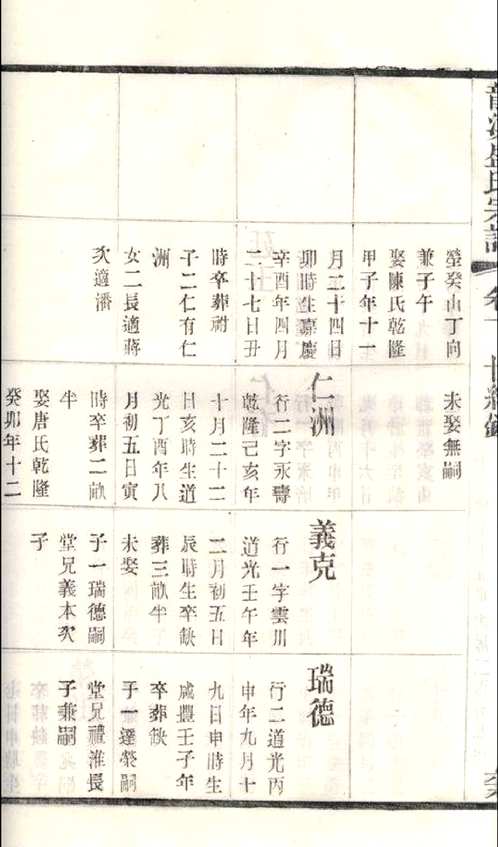 龍溪盛氏宗譜
塋癸山丁向
兼子午
娶陳氏乾隆
甲子年十一
月二十四日
卯時生嘉慶
辛酉年四月
二十七日丑
時卒葬祔
子二仁有仁
洲
女二長適蔣
次適潘
未娶無嗣
仁洲
行二字永壽
乾隆己亥年
十月二十二
日亥時生道
光丁酉年八
月初五日寅
時卒葬二畝
半
娶唐氏乾隆
癸卯年十二
義克
行一字雲川
道光壬午年
二月初五日
辰時生卒缺
葬三畝半
未娶
子一瑞德嗣
堂兄義本次
子
瑞德
行二道光丙
申年九月十
九日申時生
咸豐壬子年
卒葬缺
子一達榮嗣
堂兄禮淮長
子兼嗣